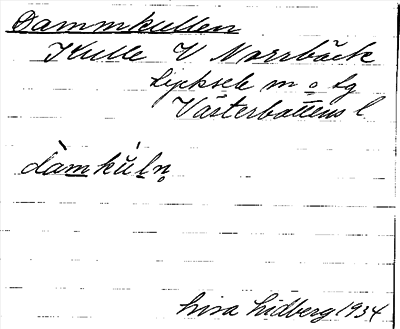 Dammkullen
Kulle V Norrbäck
Lycksele m o lg
Västerbottens l
dàmkùln̥
Lisa Lidberg 1934